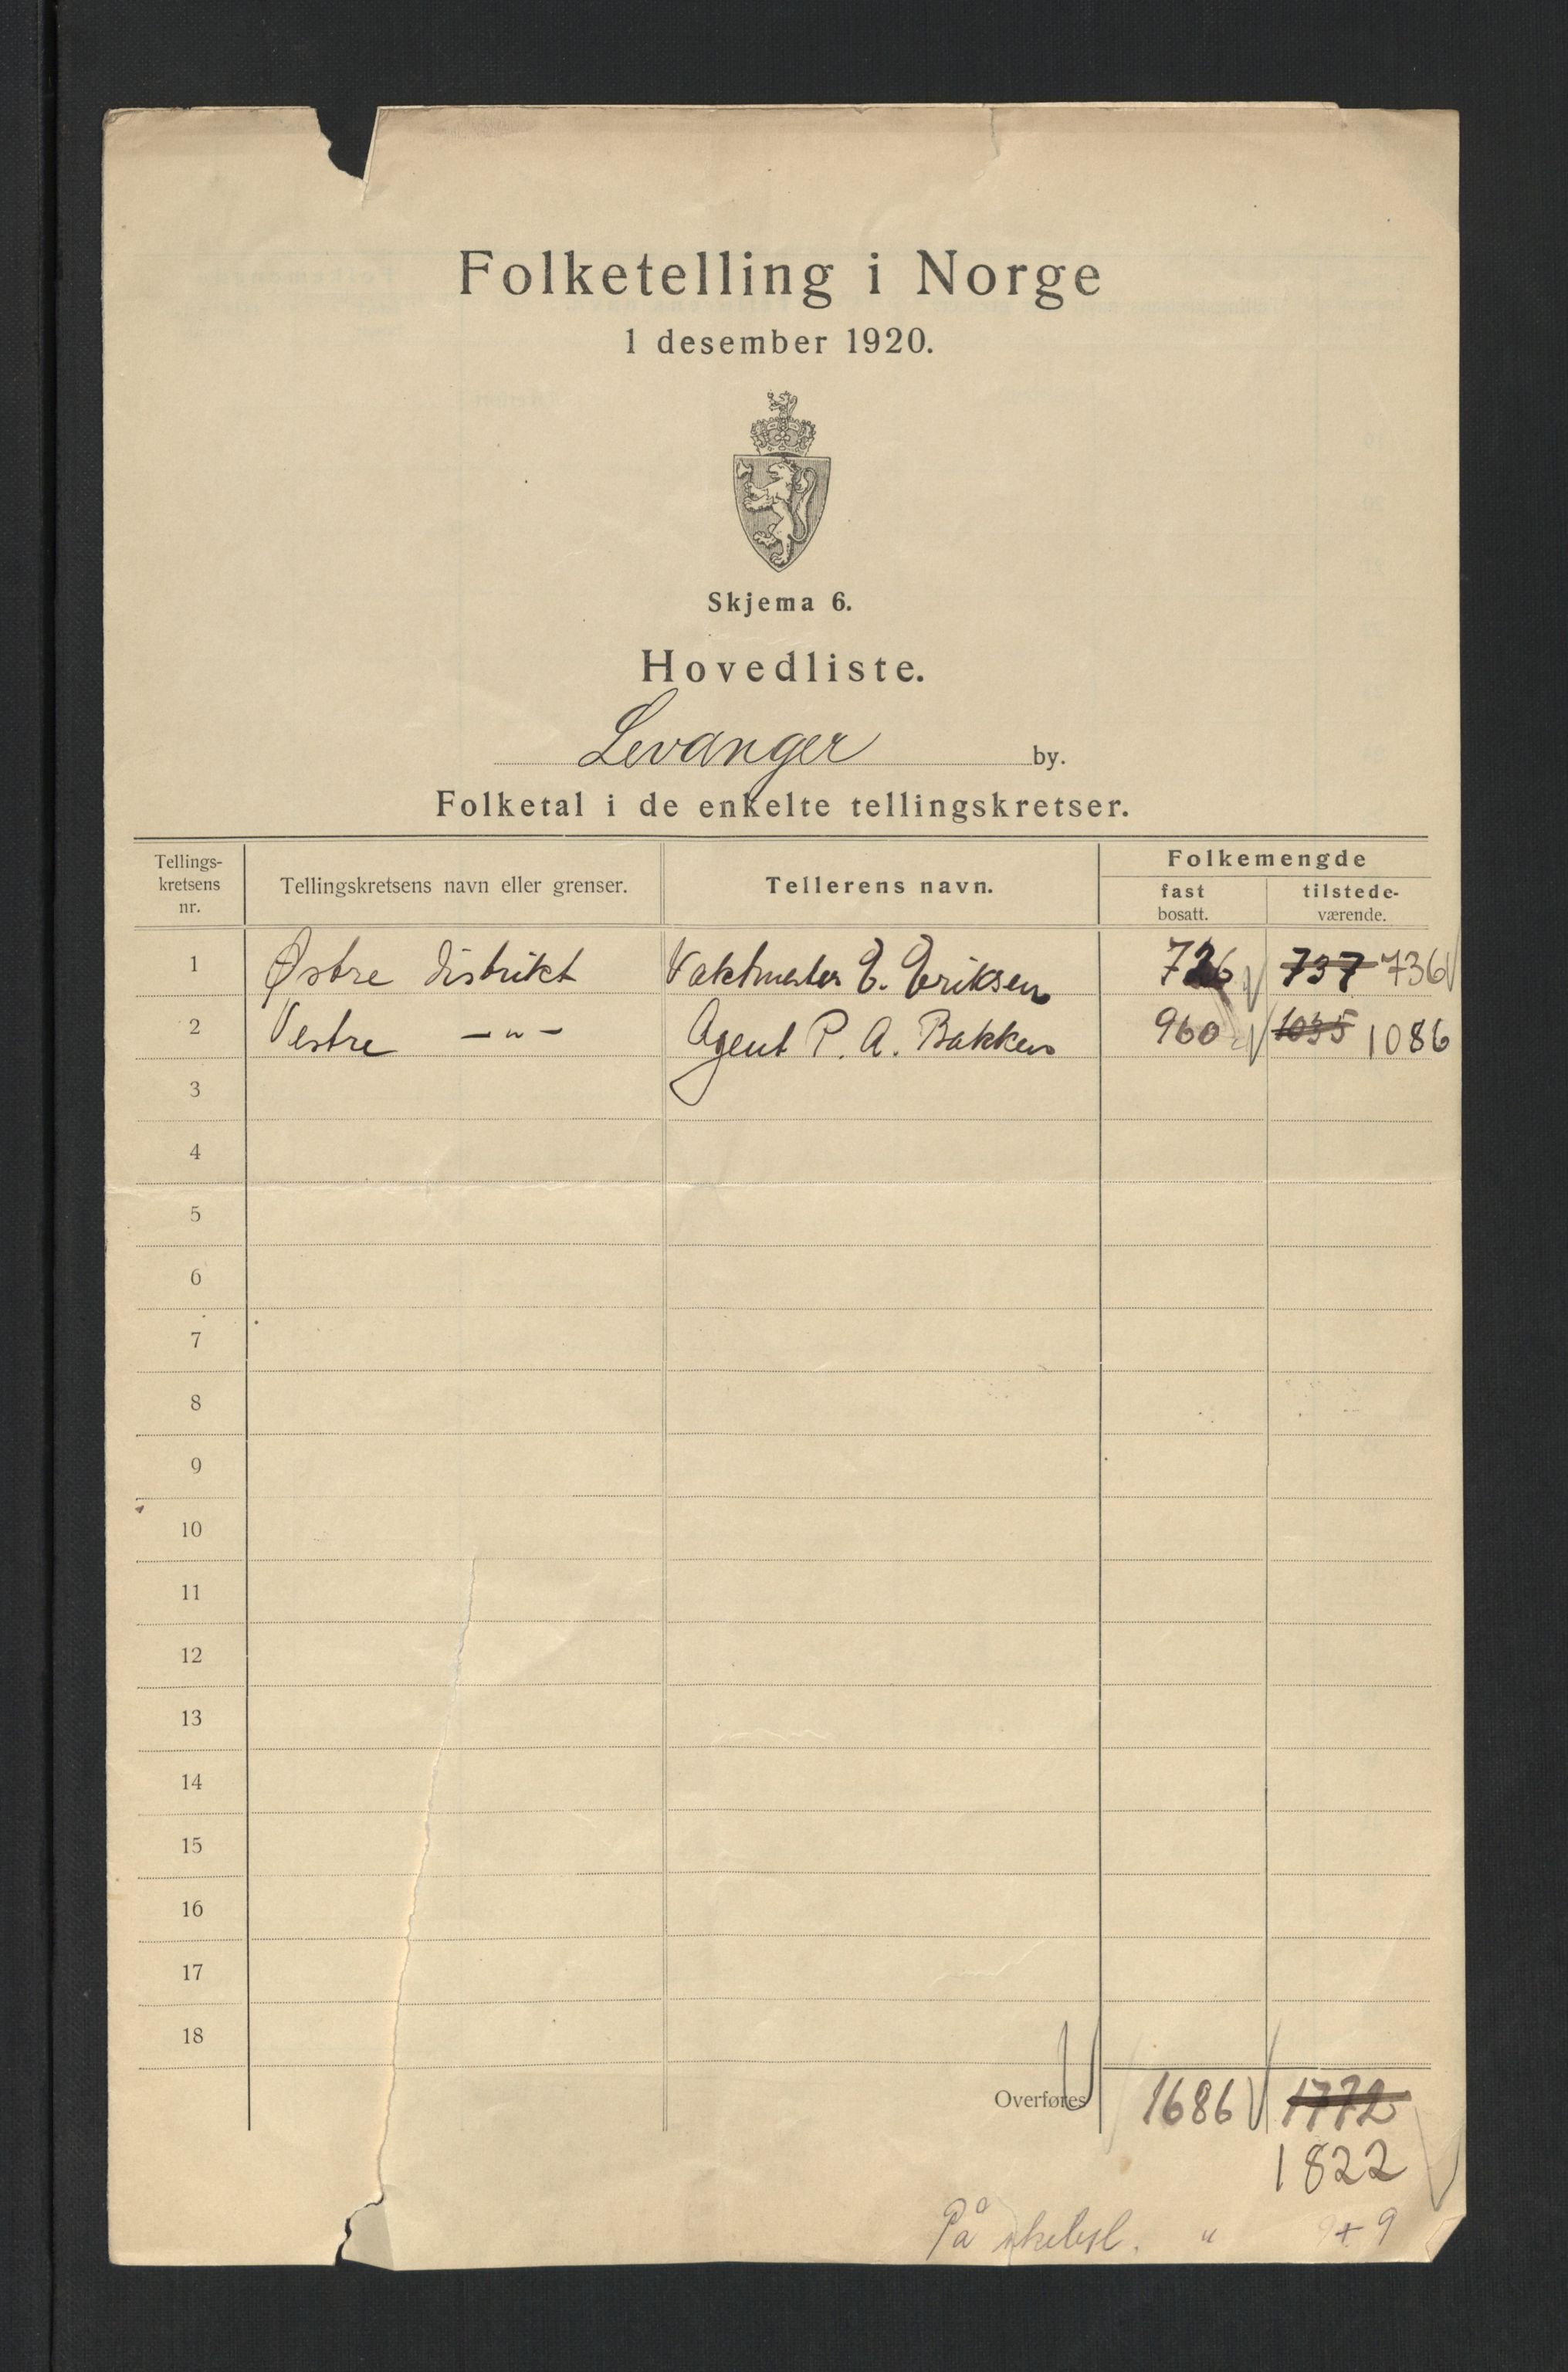 Folketelling i Norge
1 desember 1920.
Skjema 6.
Hovedliste.
Levanger by.
Folketal i de enkelte tellingskretser.
Tellings-
kretsens
nr.
Tellingskretsens navn eller grenser.
Tellerens navn.
Folkemengde
fast
bosatt.
tilstede-
værende.
1 Østre distrikt Vaktmester E. Eriksen 726 737 736
2 Vestre —„— Agent P. A. Bakken 960 1035 1086
3
4
5
6
7
8
9
10
11
12
13
14
15
16
17
18
Overføres 1686 1772
1822
På " + 9